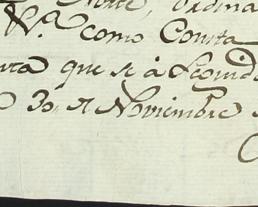 Ordina
Vª. como Consta
que se á Seguid
30, de Noviembre